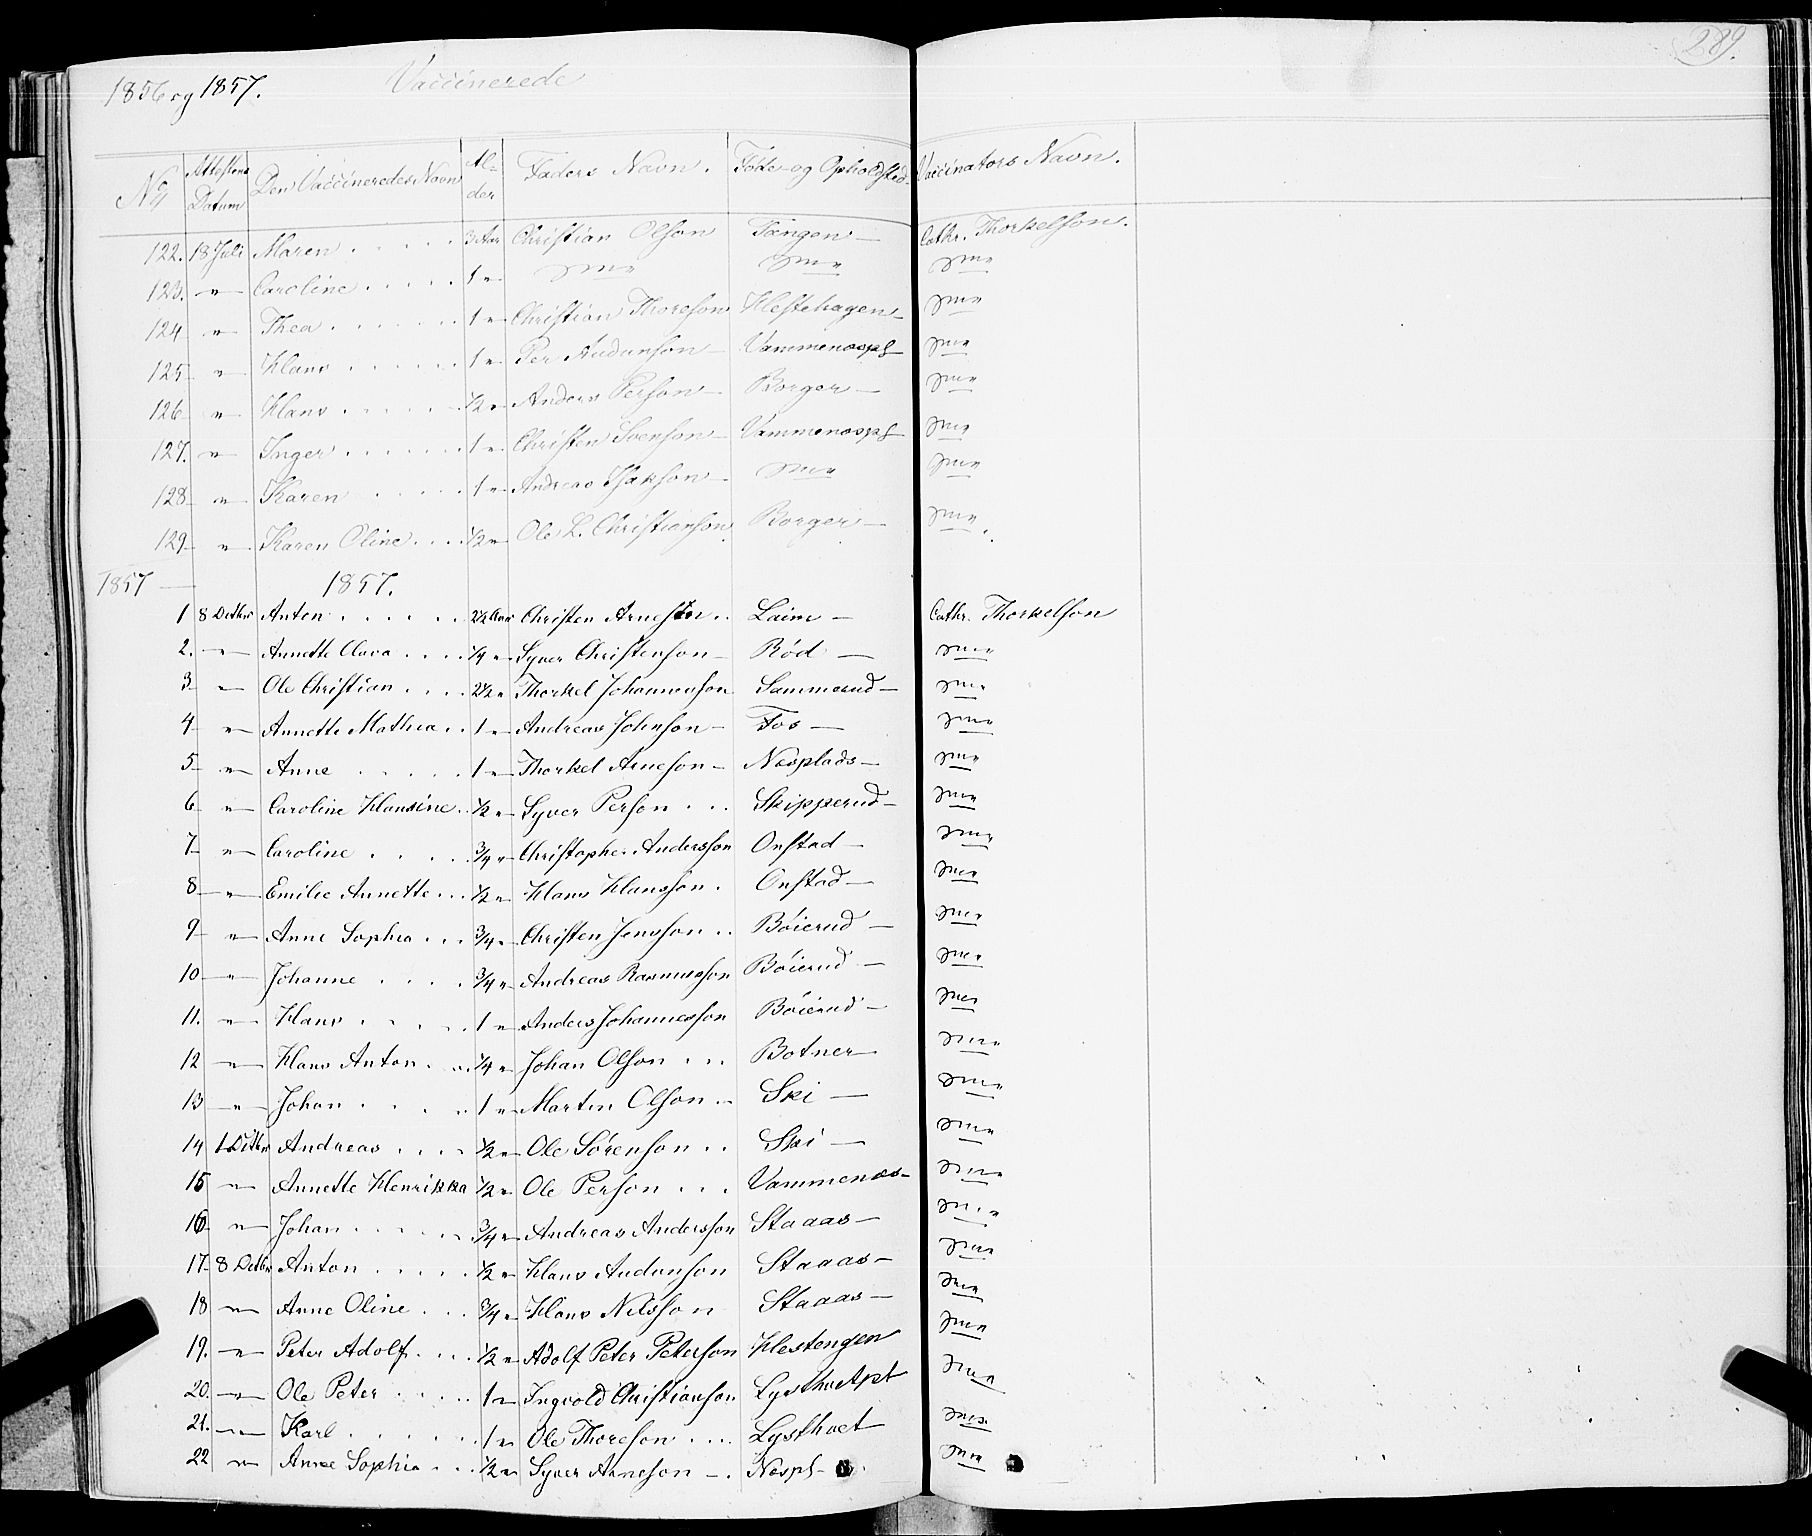 289.
1856 og 1857. Vaccinerede
No Attestens Datum Den Vaccineredes Navn Al-der Faders Navn. Føde- og Opholdsted Vaccinators Navn.
122. 18 Juli Maren . . . . . 3 Aar Christian Olson Tangen — Cathr. Thorkelson.
123. — " — Caroline . . . . . 1 " — " — — " — — " —
124 — " — Thea . . . . . 1 " Christian Thoreson Hestehagen — — " —
125 — " — Hans . . . . . 1 " Per Audunson — Vammenæspl — " —
126 — " — Hans . . . . . 1/2 " Anders Person — Borger — — " —
127. — " — Inger . . . . . 1 " Christen Svenson — Vammenæspl — " —
128 — " — Karen . . . . . 1 " Andreas Isakson — — " — — " —
129 — " — Karen Oline . . . 1/2 " Ole L. Christianson Borger — — " —
1857 — 1857.
1 8 Octbr Anton . . . . . 2 1/2 Aar Christen Arneson . . Laim — Cathr. Thorkelson
2. — " — Annette Clara . . . . 1/4 " Syver Christenson — Rød — — " —
3 — " — Ole Christian . . . . 2 1/2 " Thorkel Johannesson Sammerud — — " —
4 — " — Annette Mathea . . 1 " Andreas Johnson — Fos — — " —
5 — " — Anne . . . . . 1 " Thorkel Arneson — Nesplads — — " —
6 — " — Caroline Hansine . . 1/2 " Syver Person . . . Skipperud — — " —
7 — " — Caroline . . . . 3/4 " Christopher Andersson Onstad — — " —
8 — " — Emilie Annette . . . 1/2 " Hans Hansson . Onstad — — " —
9 — " — Anne Sophia . . . 3/4 " Christen Jensson . . Bøierud — — " —
10 — " — Johanne . . . . 3/4 " Andreas Rasmusson Bøierud — — " —
11. — " — Hans . . . . . 1 " Anders Johannesson Bøierud — — " —
12 — " — Hans Anton . . . 1/4 " Johan Olson . . . Botner — — " —
13 — " — Johan . . . . . 1 " Martin Olson . . Ski — — " —
14 1 Octbr Andreas . . . . 1/2 " Ole Sørenson . . Ski — — " —
15 — " — Annette Henrikka 1/2 " Ole Person . . . Vammenæs — — " —
16 — " — Johan . . . . . 3/4 " Andreas Andersson Staaas — — " —
17. 8 Octbr Anton . . . . . 1/2 " Hans Audunson Staaas — — " —
18 — " — Anne Oline . . . 3/4 " Hans Nilsson Staaas — — " —
19. — " — Peter Adolf . . . . 1/2 " Adolf Peter Peterson Hestengen — " —
20. — " — Ole Peter . . . . 1 " Ingvold Christianson Lysthuetpl — " —
21. — " — Karl . . . . . 1 " Ole Thoreson . . . . Lysthuet — " —
22 — " — Anne Sophia . . . 1/2 " Syver Arneson — . Nespl — — " —